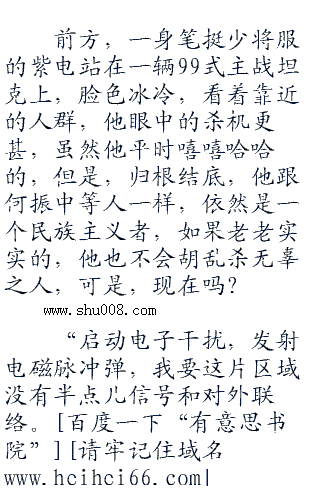 前方，一身笔挺少将服
的紫电站在一辆99式主战坦
克上，脸色冰冷，看着靠近
的人群，他眼中的杀机更
甚，虽然他平时嘻嘻哈哈
的，但是，归根结底，他跟
何振中等人一样，依然是一
个民族主义者，如果老老实
实的，他也不会胡乱杀无辜
之人，可是，现在吗？
www.shu008.com
“启动电子干扰，发射
电磁脉冲弹，我要这片区域
没有半点儿信号和对外联
络。[百度一下“有意思书
院”][请牢记住域名
www.hcihci66.com|